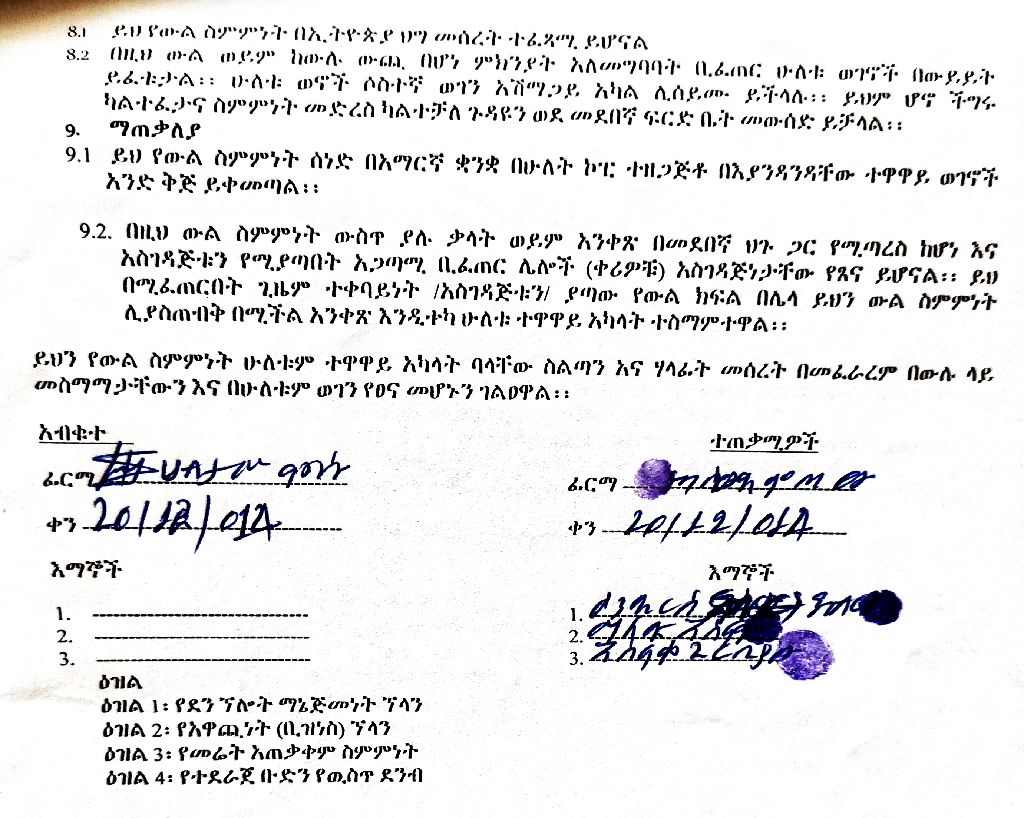 8.1 ይህ የውል ስምምነት በኢትዮጵያ ህግ መሰረት ተፈጻሚ ይሆናል
8.2 በዚህ ውል ወይም ከውሉ ውጪ በሆነ ምክንያት አለመግባባት ቢፈጠር ሁለቱ ወገኖች በውይይት
ይፈቱታል፡፡ ሁለቱ ወኖች ሶስተኛ ወገን አሸማጋይ አካል ሊሰይሙ ይችላሉ፡፡ ይህም ሆኖ ችግሩ
ካልተፈታና ስምምነት መድረስ ካልተቻለ ጉዳዩን ወደ መደበኛ ፍርድ ቤት መውሰድ ይቻላል፡፡
9. ማጠቃለያ
9.1 ይህ የውል ስምምነት ሰነድ በአማርኛ ቋንቋ በሁለት ኮፒ ተዘጋጅቶ በእያንዳንዳቸው ተዋዋይ ወገኖች
አንድ ቅጅ ይቀመጣል፡፡
9.2. በዚህ ውል ስምምነት ውስጥ ያሉ ቃላት ወይም አንቀጽ በመደበኛ ህጉ ጋር የሚጣረስ ከሆነ እና
አስገዳጅቱን የሚያጣበት አጋጣሚ ቢፈጠር ሌሎች (ቀሪዎቹ) አስገዳጅነታቸው የጸና ይሆናል፡፡ ይህ
በሚፈጠርበት ጊዜም ተቀባይነት /አስገዳጅቱን/ ያጣው የውል ክፍል በሌላ ይህን ውል ስምምነት
ሊያስጠብቅ በሚችል አንቀጽ እንዲተካ ሁለቱ ተዋዋይ አካላት ተስማምተዋል፡፡
ይህን የውል ስምምነት ሁለቱም ተዋዋይ አካላት ባላቸው ስልጣን እና ሃላፊት መሰረት በመፈራረም በውሉ ላይ
መስማማታቸውን እና በሁለቱም ወገን የፀና መሆኑን ገልፀዋል፡፡
አብቁተ
ተጠቃሚዎች
ፊርማ
ፊርማ
ቀን 20/12/012
ቀን 20/12/012
እማኞች
እማኞች
1.
1.
2.
2.
3.
3.
ዕዝል
ዕዝል 1፡ የደን ኘሎት ማኔጅመነት ኘላን
ዕዝል 2፡ የአዋጪነት (ቢዝነስ) ኘላን
ዕዝል 3፡ የመሬት አጠቃቀም ስምምነት
ዕዝል 4፡ የተደራጀ ቡድን የዉስጥ ደንብ